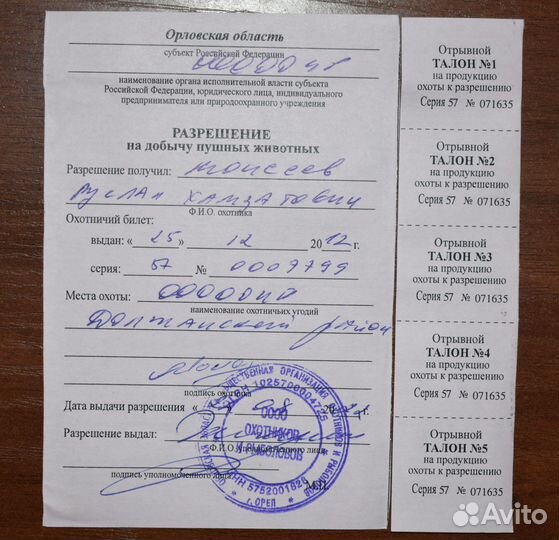 Орловская область
субъект Российской Федерации
наименование органа исполнительной власти субъекта
Российской Федерации, юридического лица, индивидуального
предпринимателя или природоохранного учреждения
РАЗРЕШЕНИЕ
на добычу пушных животных
Разрешение получил: Моисеев
Руслан Хамзатович
Ф.И.О. охотника
Охотничий билет:
выдан: « 25 » 12 2012 г.
серия: 57 № 0009799
Места охоты:
наименование охотничьих угодий
Должанский район
подпись охотника
Дата выдачи разрешения «
Разрешение выдал:
Ф.И.О. уполномоченного лица
подпись уполномоченного лица
М.П.
ОБЩЕСТВЕННАЯ ОРГАНИЗАЦИЯ
ОГРН 1025700004725
ОООО
ОХОТНИКОВ
И РЫБОЛОВОВ
ИНН 5752001826
* г. ОРЕЛ *
Отрывной
ТАЛОН №1
на продукцию
охоты к разрешению
Серия 57 № 071635
Отрывной
ТАЛОН №2
на продукцию
охоты к разрешению
Серия 57 № 071635
Отрывной
ТАЛОН №3
на продукцию
охоты к разрешению
Серия 57 № 071635
Отрывной
ТАЛОН №4
на продукцию
охоты к разрешению
Серия 57 № 071635
Отрывной
ТАЛОН №5
на продукцию
охоты к разрешению
Серия 57 № 071635
Avito